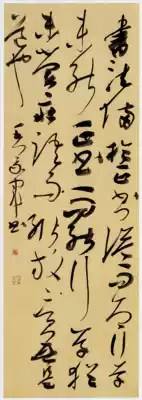 書法備於正書溢而為行草
未能正書而能行草猶
未嘗莊語而輒放言無是
道也